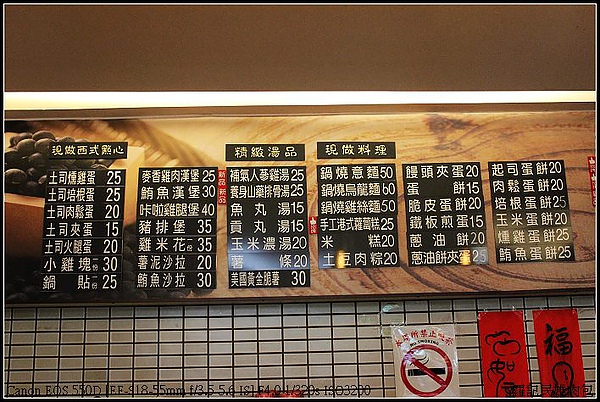 現做西式點心
土司燻雞蛋 25
土司培根蛋 25
土司肉鬆蛋 20
土司夾蛋 15
土司火腿蛋 20
小雞塊一份 30
鍋貼一份 25
麥香雞肉漢堡 25
鮪魚漢堡 30
咔啦雞腿堡 40
豬排堡 35
雞米花一份 35
薯泥沙拉 20
鮪魚沙拉 30
精緻湯品
補氣人蔘雞湯 25
養身山藥排骨湯 25
魚丸湯 15
貢丸湯 15
玉米濃湯 20
薯條 20
美國黃金脆薯 30
現做料理
鍋燒意麵 50
鍋燒烏龍麵 60
鍋燒雞絲麵 50
手工港式蘿蔔糕 25
米糕 20
土豆肉粽 20
饅頭夾蛋 20
蛋餅 15
脆皮蛋餅 20
鐵板煎蛋 15
蔥油餅 20
蔥油餅夾蛋 25
起司蛋餅 20
肉鬆蛋餅 20
培根蛋餅 25
玉米蛋餅 20
燻雞蛋餅 25
鮪魚蛋餅 25
本場所禁止吸菸
NO SMOKING
福
Canon EOS 550D